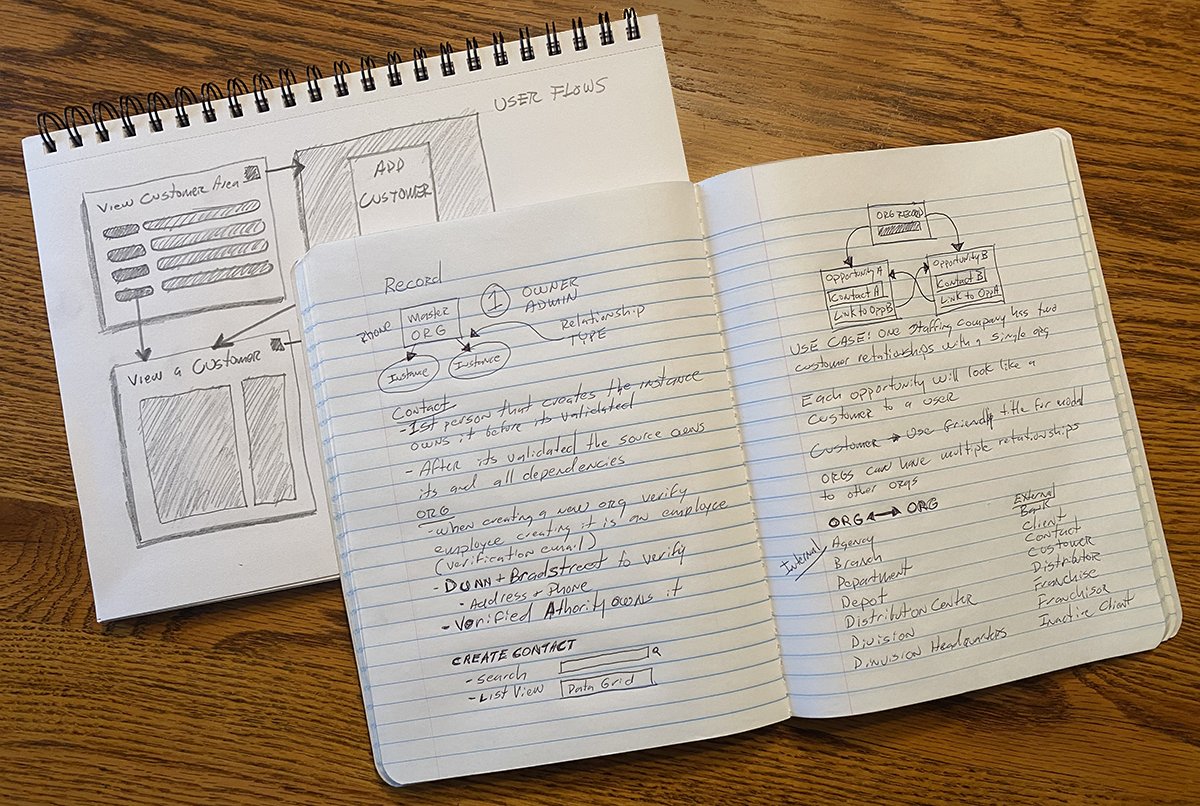 USER FLOWS
View Customer Area
ADD
CUSTOMER
View a Customer
Record
PHONE
Master
ORG
1
OWNER
ADMIN
Relationship
TYPE
Instance
Instance
Contact
- 1st person that creates the instance
owns it before its validated
- After its validated the source owns
its and all dependencies
ORG
- when creating a new org verify
employee creating it is an employee
(verification email)
- Dunn + Bradstreet to verify
- Address + Phone
- Verified Athority owns it
CREATE CONTACT
- search
- List View
Data Grid
ORG RECORD
Opportunity A
Contact A
Link to Opp B
Opportunity B
Contact B
Link to Opp A
USE CASE: One Staffing Company has two
customer retationships with a single org
Each opportunity will look like a
customer to a user
Customer → Use friendly title for modal
ORGS can have multiple retationships
to other orgs
ORG ↔ ORG
Internal
Agency
Branch
Department
Depot
Distribution Center
Division
Dinvision Headquarters
External
Bank
Client
Contact
Customer
Distributor
Franchise
Franchisor
Inactive Client